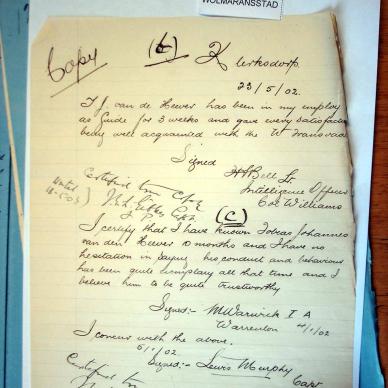 WOLMARANSSTAD
Copy (b) Klerksdorp.
23/5/02.
T J. van de Hewer has been in my employ
as Guide for 3 weeks and gave every satisfaction
being well acquainted with the W Transvaal
Signed
H Bell Lt.
Intelligence Officer
Col Williams
Certified true Copy
J.P.
(c)
I certify that I have known Tobias Johannes
van den Hewer 10 months and I have no
hesitation in saying his conduct and behaviour
has been quite exemplary all that time and I
believe him to be quite trustworthy
Signed:- M Warwick I A
Warrenton 4/1/02
I concur with the above.
6/1/02. Signed:- Lewis Murphy
Capt
Certified true